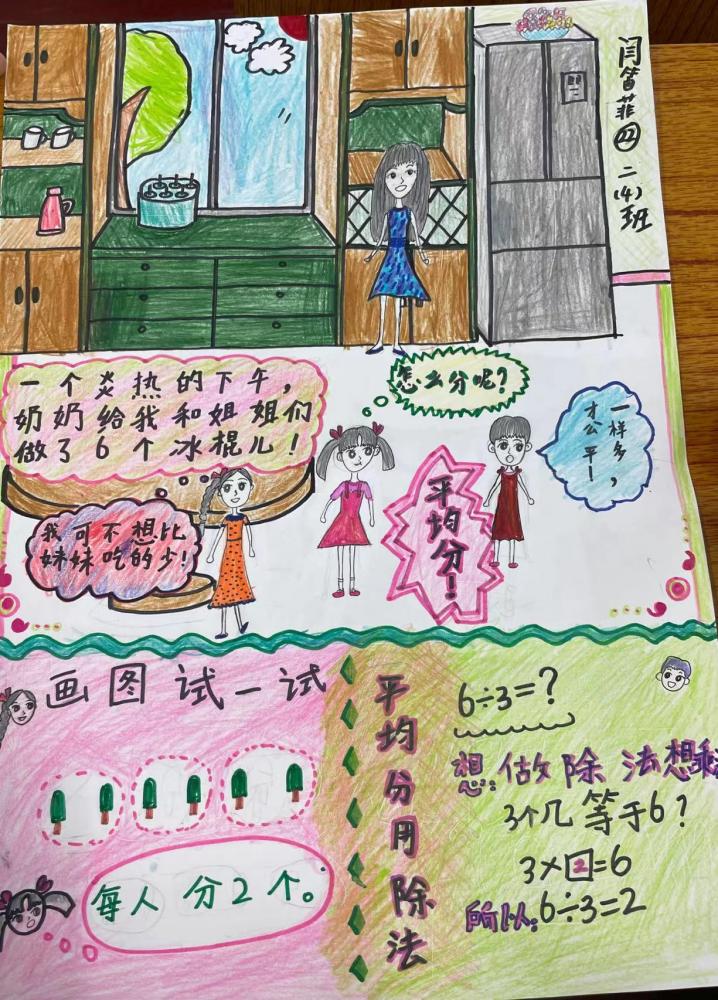 闫笛菲㊷
二(4)班
一个炎热的下午，
奶奶给我和姐姐们
做了6个冰棍儿！
怎么分呢？
一样多，
才公平！
平均分！
我可不想比
妹妹吃的少！
画图试一试
每人分2个。
平均分用除法
6÷3=？
想：做除法想乘
3个几等于6？
3×2=6
所以：6÷3=2